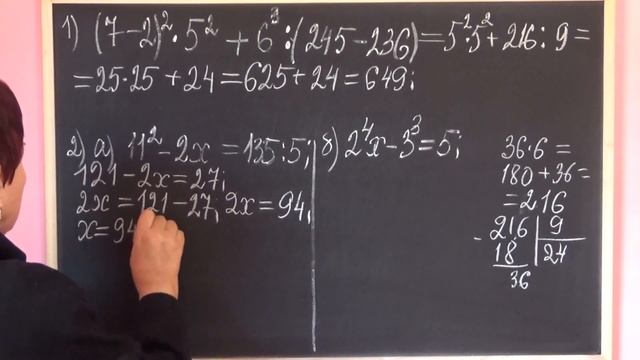 1) (7-2)²·5² + 6³:(245-236)=5²·5²+216:9=
=25·25+24=625+24=649;
2) а) 11²-2x=135:5;
121-2x=27;
2x=121-27; 2x=94;
x=94
б) 2⁴x-3³=5;
36·6=
180+36=
=216
216 | 9
- 18 | 24
36